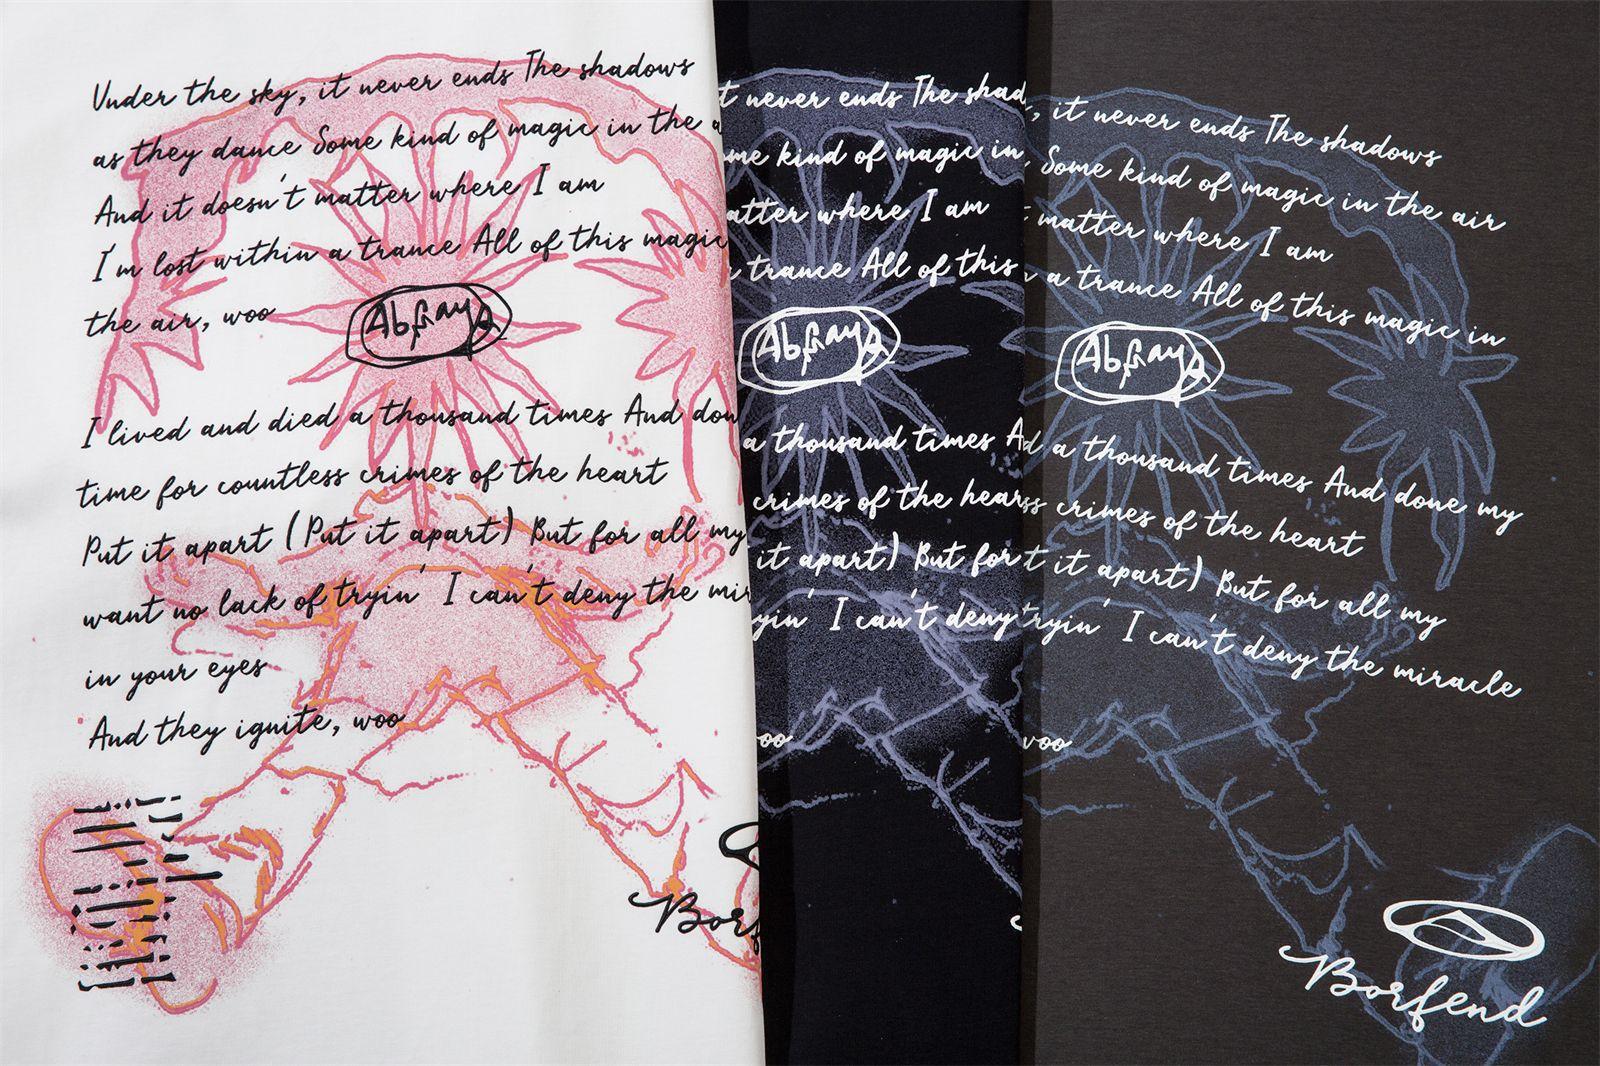 Under the sky, it never ends The shadows
as they dance Some kind of magic in the a
And it doesn't matter where I am
I'm lost within a trance All of this magic
the air, woo
I lived and died a thousand times And don
time for countless crimes of the heart
Put it apart (Put it apart) But for all my
want no lack of tryin' I can't deny the mir
in your eyes
And they ignite, woo
Borf
t never ends The shad
me kind of magic in
atter where I am
trance All of this
a thousand times A
crimes of the hear
it apart) But for
yin' I can't deny
oo
, it never ends The shadows
Some kind of magic in the air
t matter where I am
a trance All of this magic in
d a thousand times And done my
ss crimes of the heart
t it apart) But for all my
tryin' I can't deny the miracle
woo
Borfend